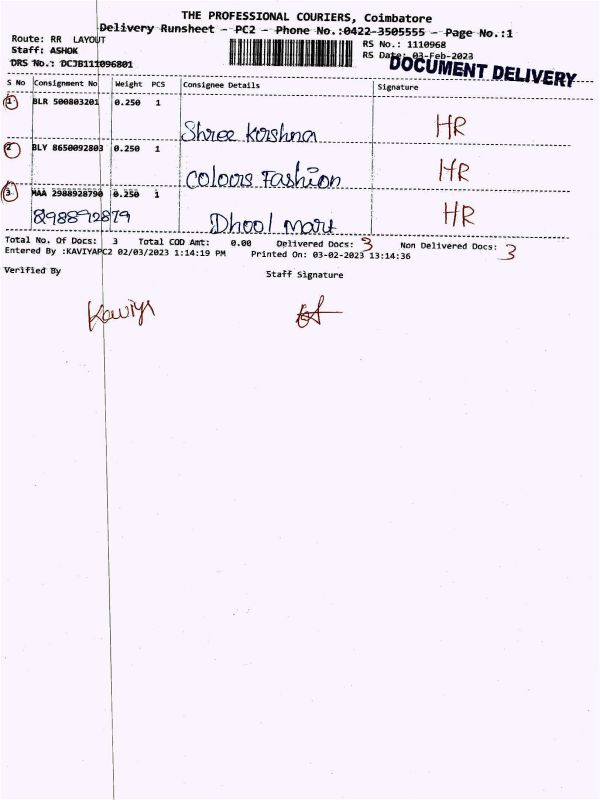 THE PROFESSIONAL COURIERS, Coimbatore
Delivery Runsheet - PC2 - Phone No.:0422-3505555 - Page No.:1
Route: RR LAYOUT
RS No.: 1110968
Staff: ASHOK
RS Date: 03-Feb-2023
DRS No.: DCJB111096801
DOCUMENT DELIVERY
S No Consignment No Weight PCS Consignee Details Signature
1 BLR 500803201 0.250 1
Shree Krishna HR
2 BLY 8650092803 0.250 1
Colours Fashion HR
3 MAA 2988928790 0.250 1
898892879 Dhool mart HR
Total No. Of Docs: 3 Total COD Amt: 0.00 Delivered Docs: 3 Non Delivered Docs: 3
Entered By :KAVIYAPC2 02/03/2023 1:14:19 PM Printed On: 03-02-2023 13:14:36
Verified By Staff Signature
Kaviya